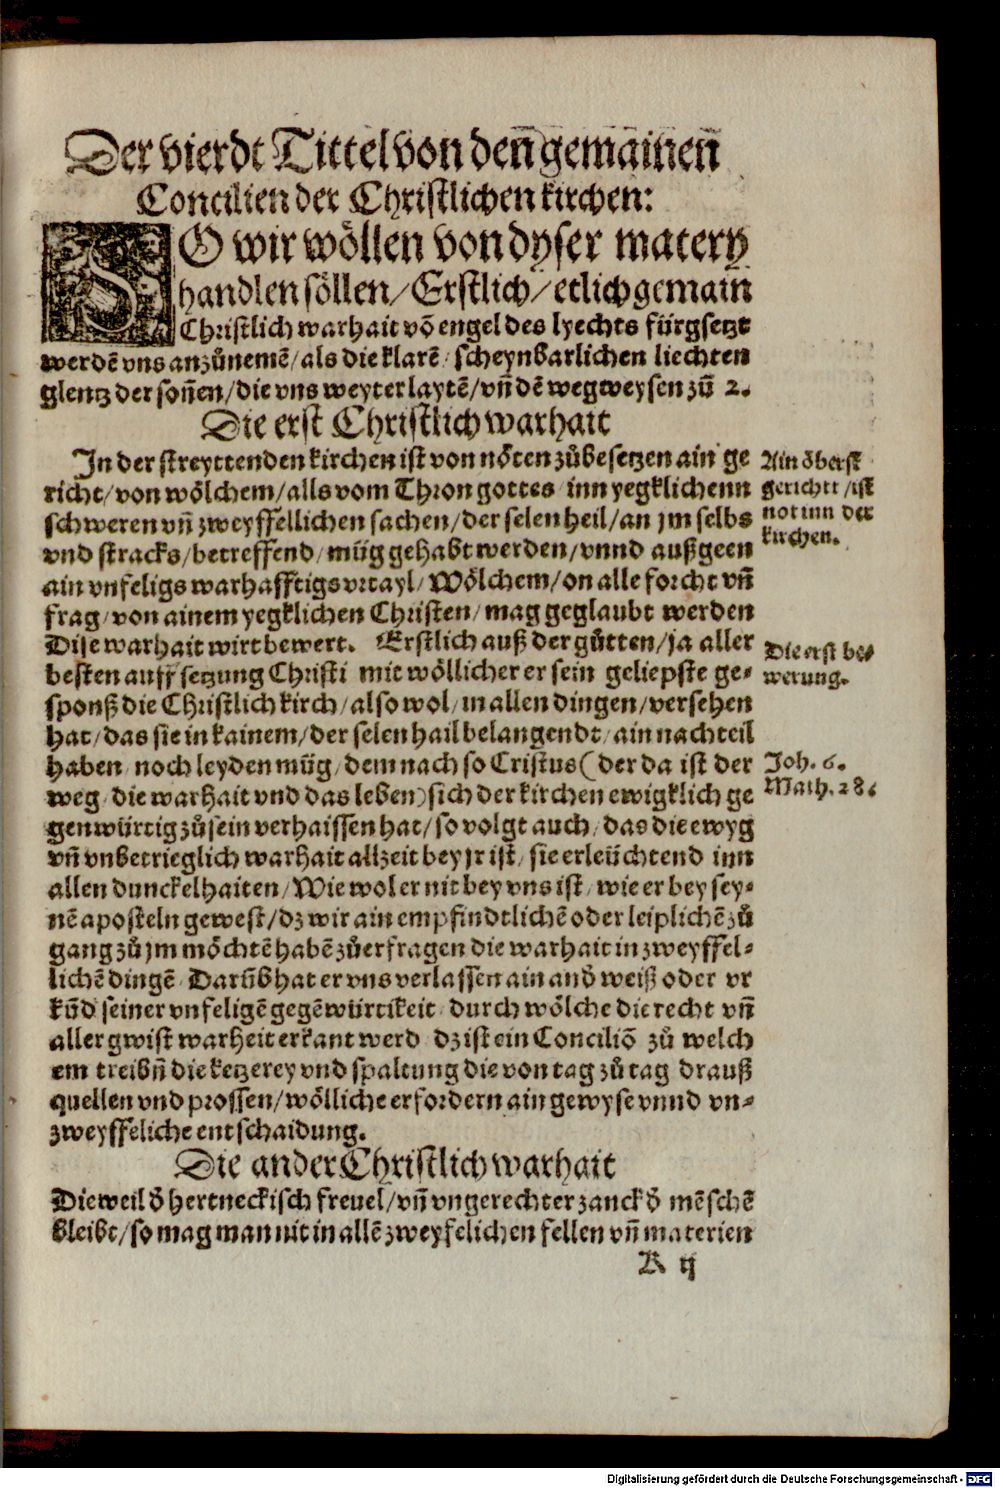 Der vierdt Tittel von den̄ gemainen̄
Concilien der Christlichen kirchen:
SO wir wöllen von dyser matery
handlen söllen/ Erstlich/ etlich gemain
Christlich warhait vō engel des lyechts fürgsetzt
werdē vns anzůnemē/ als die klarē/ scheynbarlichen liechten
glentz der son̄en/ die vns weyter laytē/ vn̄ dē weg weysen zů 2.
Die erst Christlich warhait
In der streyttenden kirchen ist von nöten zůbesetzen ain ge
richt/ von wölchem/ alls vom Thron gottes/ inn yegklichenn
schweren vn̄ zweyffellichen sachen/ der selen heil/ an jm selbs
vnd stracks/ betreffend/ müg gehabt werden/ vnnd außgeen
ain vnfeligs warhafftigs vrtayl/ Wölchem/ on alle forcht vn̄
frag/ von ainem yegklichen Christen/ mag geglaubt werden
Dise warhait wirt bewert. Erstlich auß der gůtten/ ja aller
besten auffsetzung Christi mit wöllicher er sein geliepste ge-
sponß die Christlich kirch/ also wol/ in allen dingen/ versehen
hat/ das sie in kainem/ der selen hail belangendt/ ain nachteil
haben/ noch leyden müg/ dem nach so Cristus (der da ist der
weg/ die warhait vnd das leben) sich der kirchen ewigklich ge
genwürtig zů sein verhaissen hat/ so volgt auch/ das die ewyg
vn̄ vnbetrieglich warhait allzeit bey jr ist/ sie erleüchtend inn
allen dunckelhaiten/ Wie wol er nit bey vns ist/ wie er bey sey-
nē aposteln gewest/ dz wir ain empfindtlichē oder leiplichē zů
gang zů jm möchtē habē zůerfragen die warhait in zweyffel-
lichē dingē/ Darūb hat er vns verlassen ain and̄ weiß oder vr
kūd seiner vnfeligē gegēwürtikeit/ durch wölche die recht vn̄
aller gwist warheit erkant werd/ dz ist ein Conciliō/ zů welch
em treibn̄ die ketzerey vnd spaltung die von tag zů tag drauß
quellen vnd prossen/ wölliche erfordern ain gewyse vnnd vn-
zweyffeliche entschaidung.
Die ander Christlich warhait
Die weil d̄ hertneckisch freuel/ vn̄ vngerechter zanck d̄ mēschē
bleibt/ so mag man nit in allē zweyfelichen fellen vn̄ materien
K ij
Ain öberst
gericht/ ist
not inn der
kirchen.
Die erst be-
werung.
Joh. 6.
Math. 28.
Digitalisierung gefördert durch die Deutsche Forschungsgemeinschaft - DFG